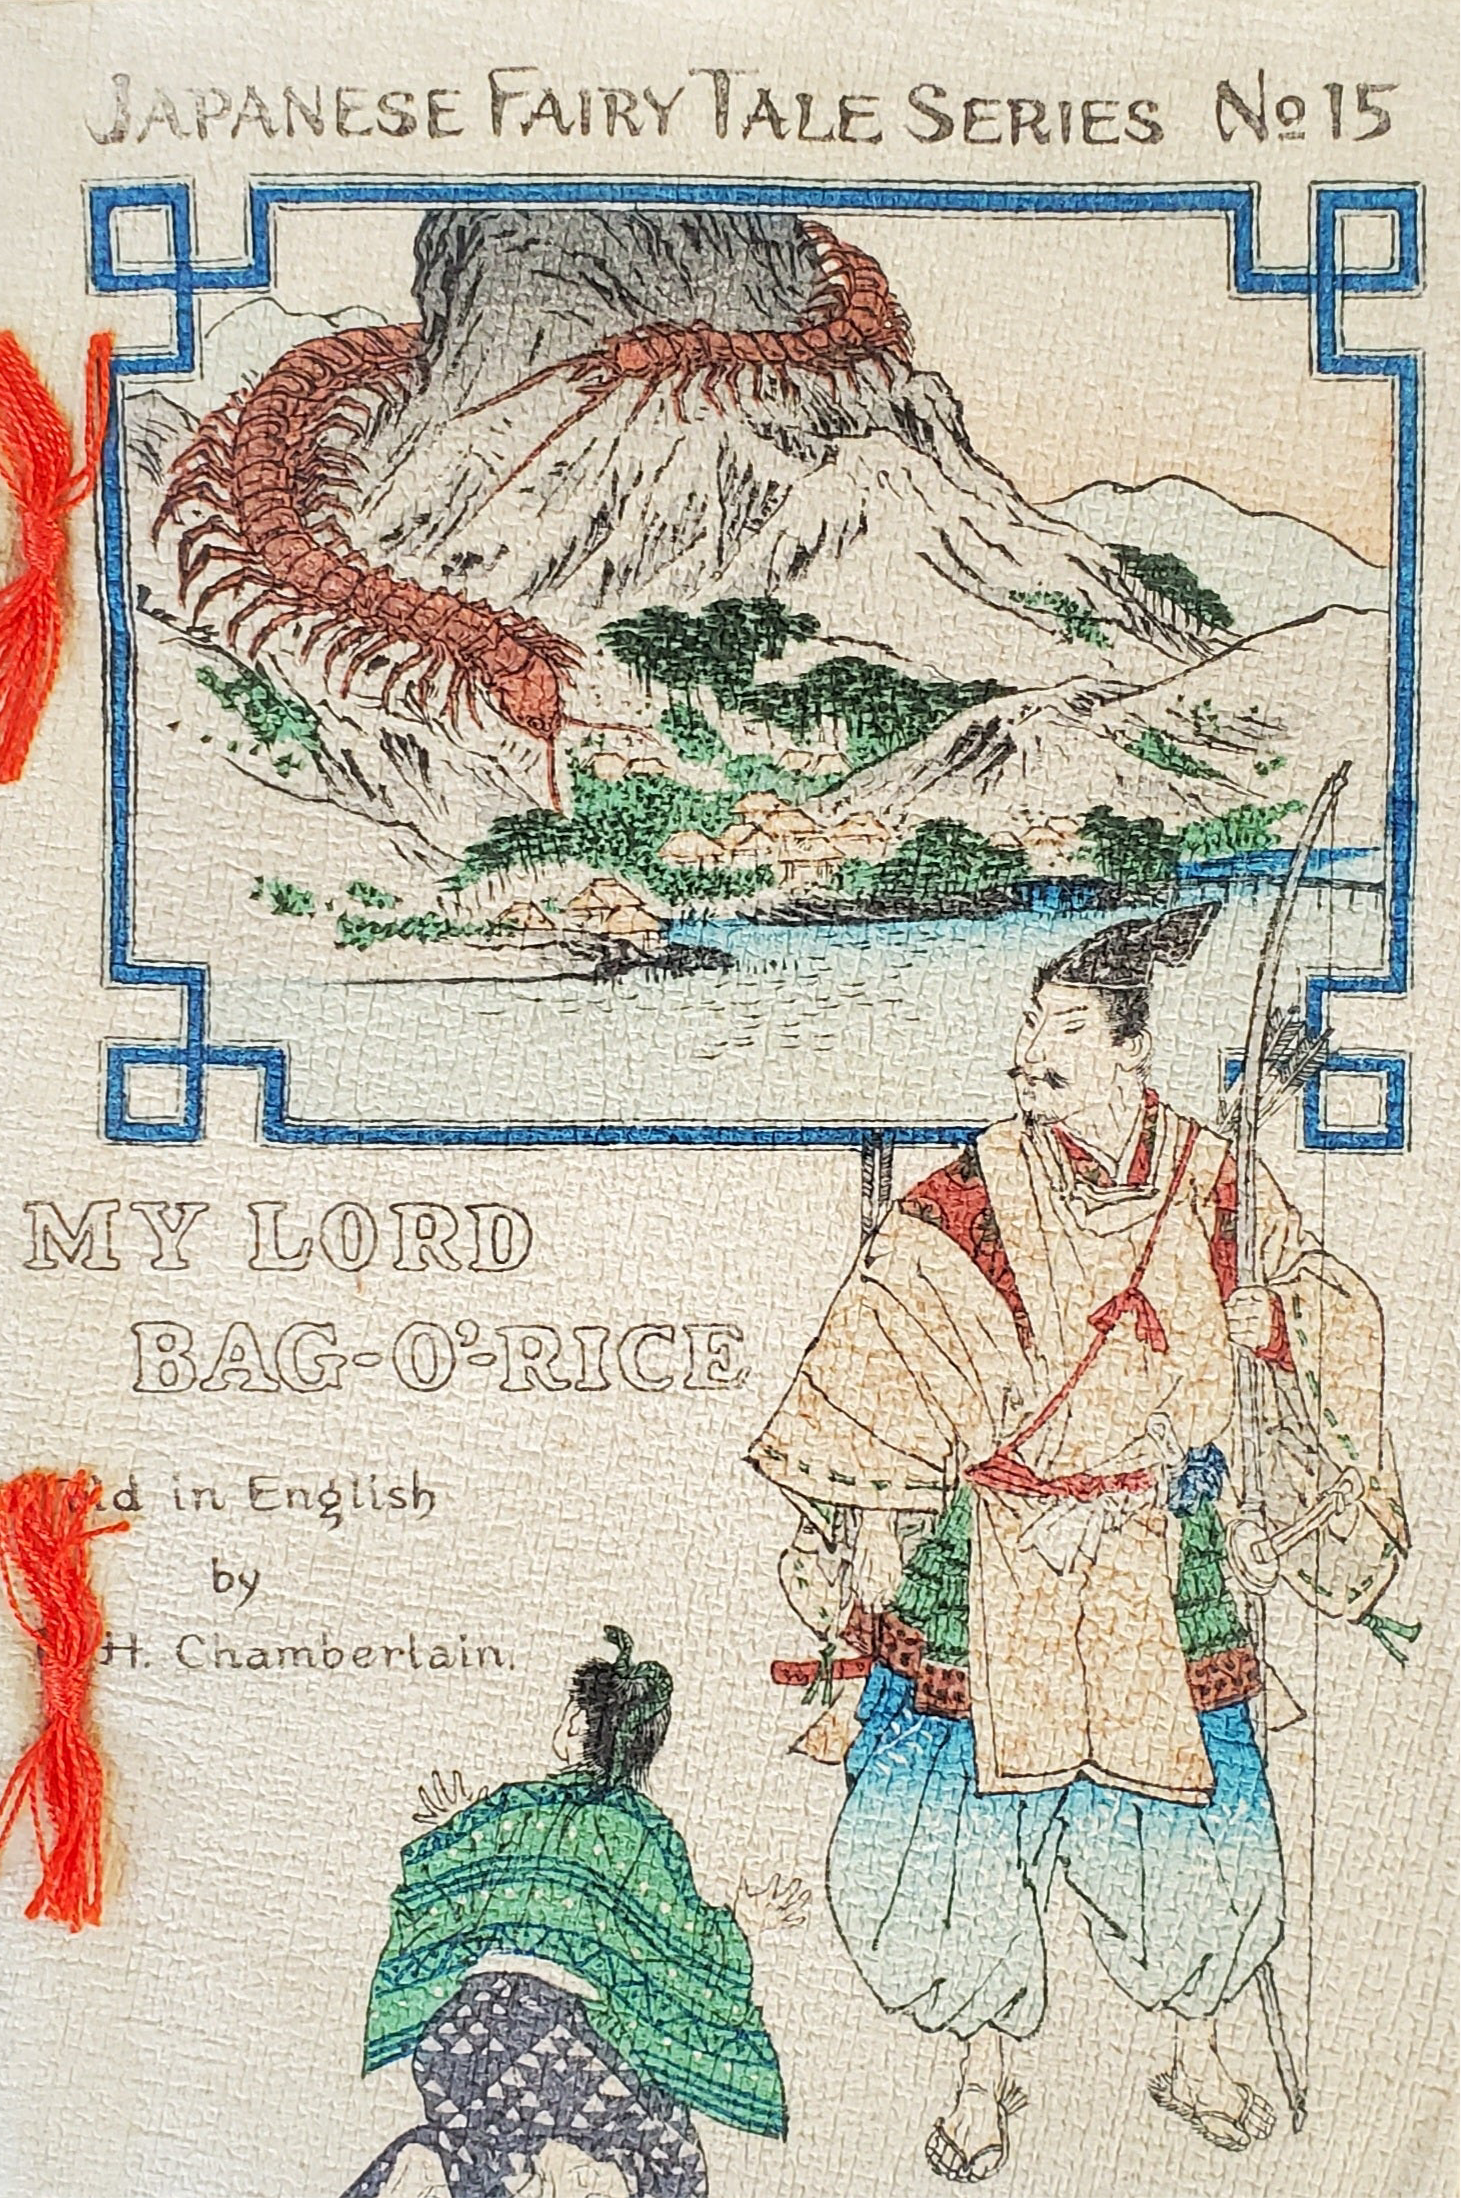 JAPANESE FAIRY TALE SERIES No 15
MY LORD
BAG-O'-RICE
in English
by
H. Chamberlain.